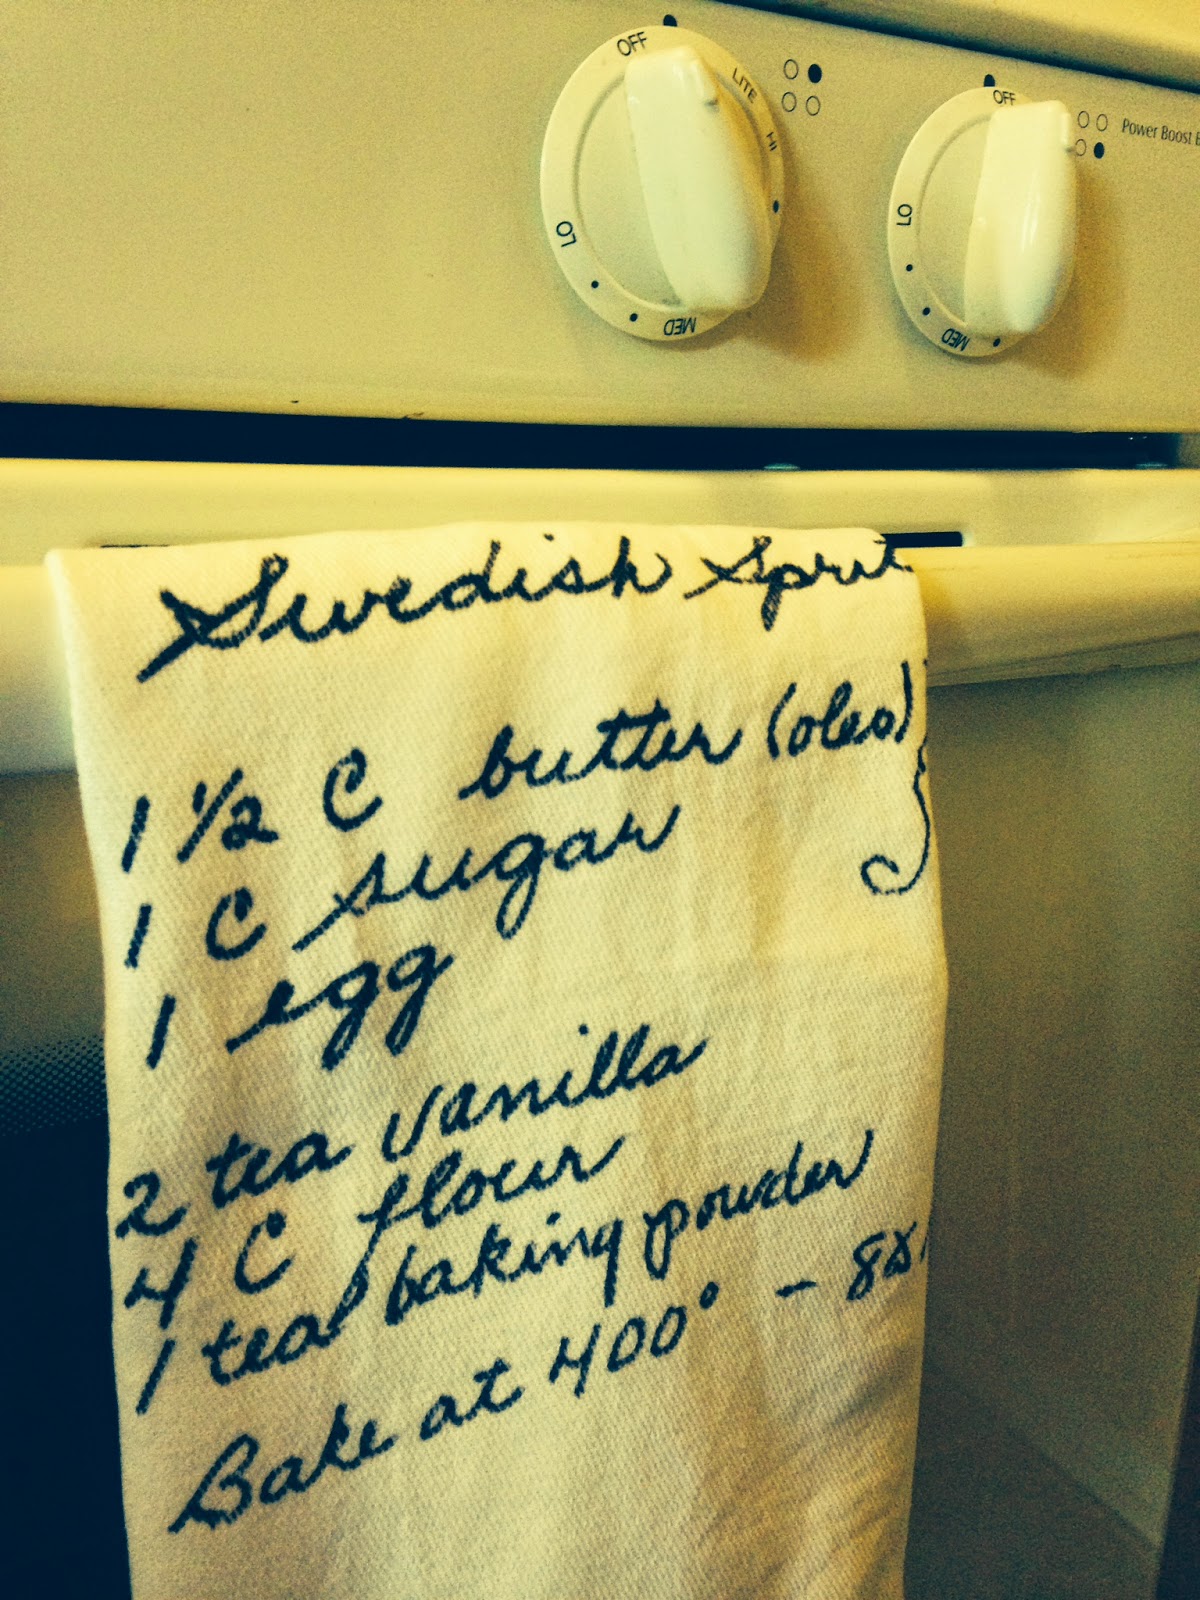 OFF
LITE
HI
MED
LO
OFF
LO
MED
Power Boost
Swedish
1 1/2 C butter (oleo)
1 C sugar
1 egg
2 tea vanilla
4 C flour
1 tea baking powder
Bake at 400° -